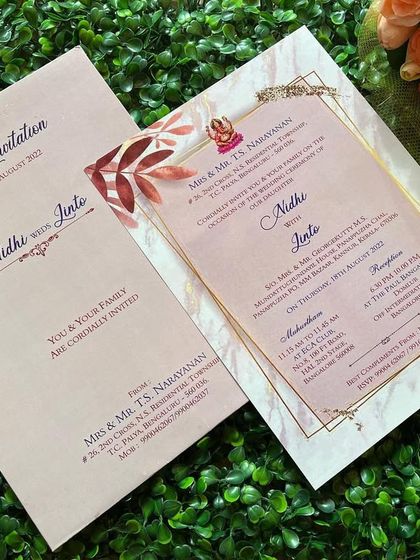 Invitation
August 2022
Nidhi weds Jinto
You & Your Family
Are cordially invited
From :
Mrs & Mr. T.S. Narayanan
# 26, 2nd Cross, N.S. Residential Township,
T.C. Palya, Bengaluru - 560 036.
Mob : 9900462067/9900462037
Mrs & Mr. T.S. Narayanan
# 26, 2nd Cross, N.S. Residential Township,
T.C. Palya, Bengaluru - 560 036,
Cordially invite you & your family on the
occasion of the wedding ceremony of
our daughter
Nidhi
with
Jinto
S/o. Mrs & Mr. Georgekutty M.S.
Mundattuchundape House, Panappuzha Chal
Panappuzha PO, MM Bazaar, Kannur, Kerala - 67030
on Thursday, 18th August 2022
Muhurtham
11.15 am to 11.45 am
at ECA Club,
No.8, 100 Ft Road,
HAL 2nd Stage,
Bangalore 560008
Reception
6.30 pm 10.00 pm
at The Paul Bang
Bangalore
Best Compliments From
RSVP 99004